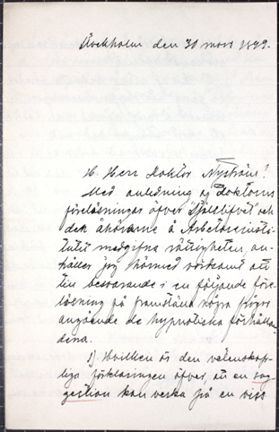 Stockholm den 30 mars 1899.
H. Herr Doktor Nyström!
Med anledning af Doktorns
föreläsningar öfver "Själslifvet" och
dek åhörarne å Arbetareinsti-
tutet medgifna rättigheten, an-
håller jag härmed vördsamt att
till besvarande i en följande före-
läsning få framställa några frågor
angående de hypnotiska förhållan-
dena.
1) Hvilken är den vetenskap-
liga förklaringen öfver, att en sug-
gestion kan verka på en viss